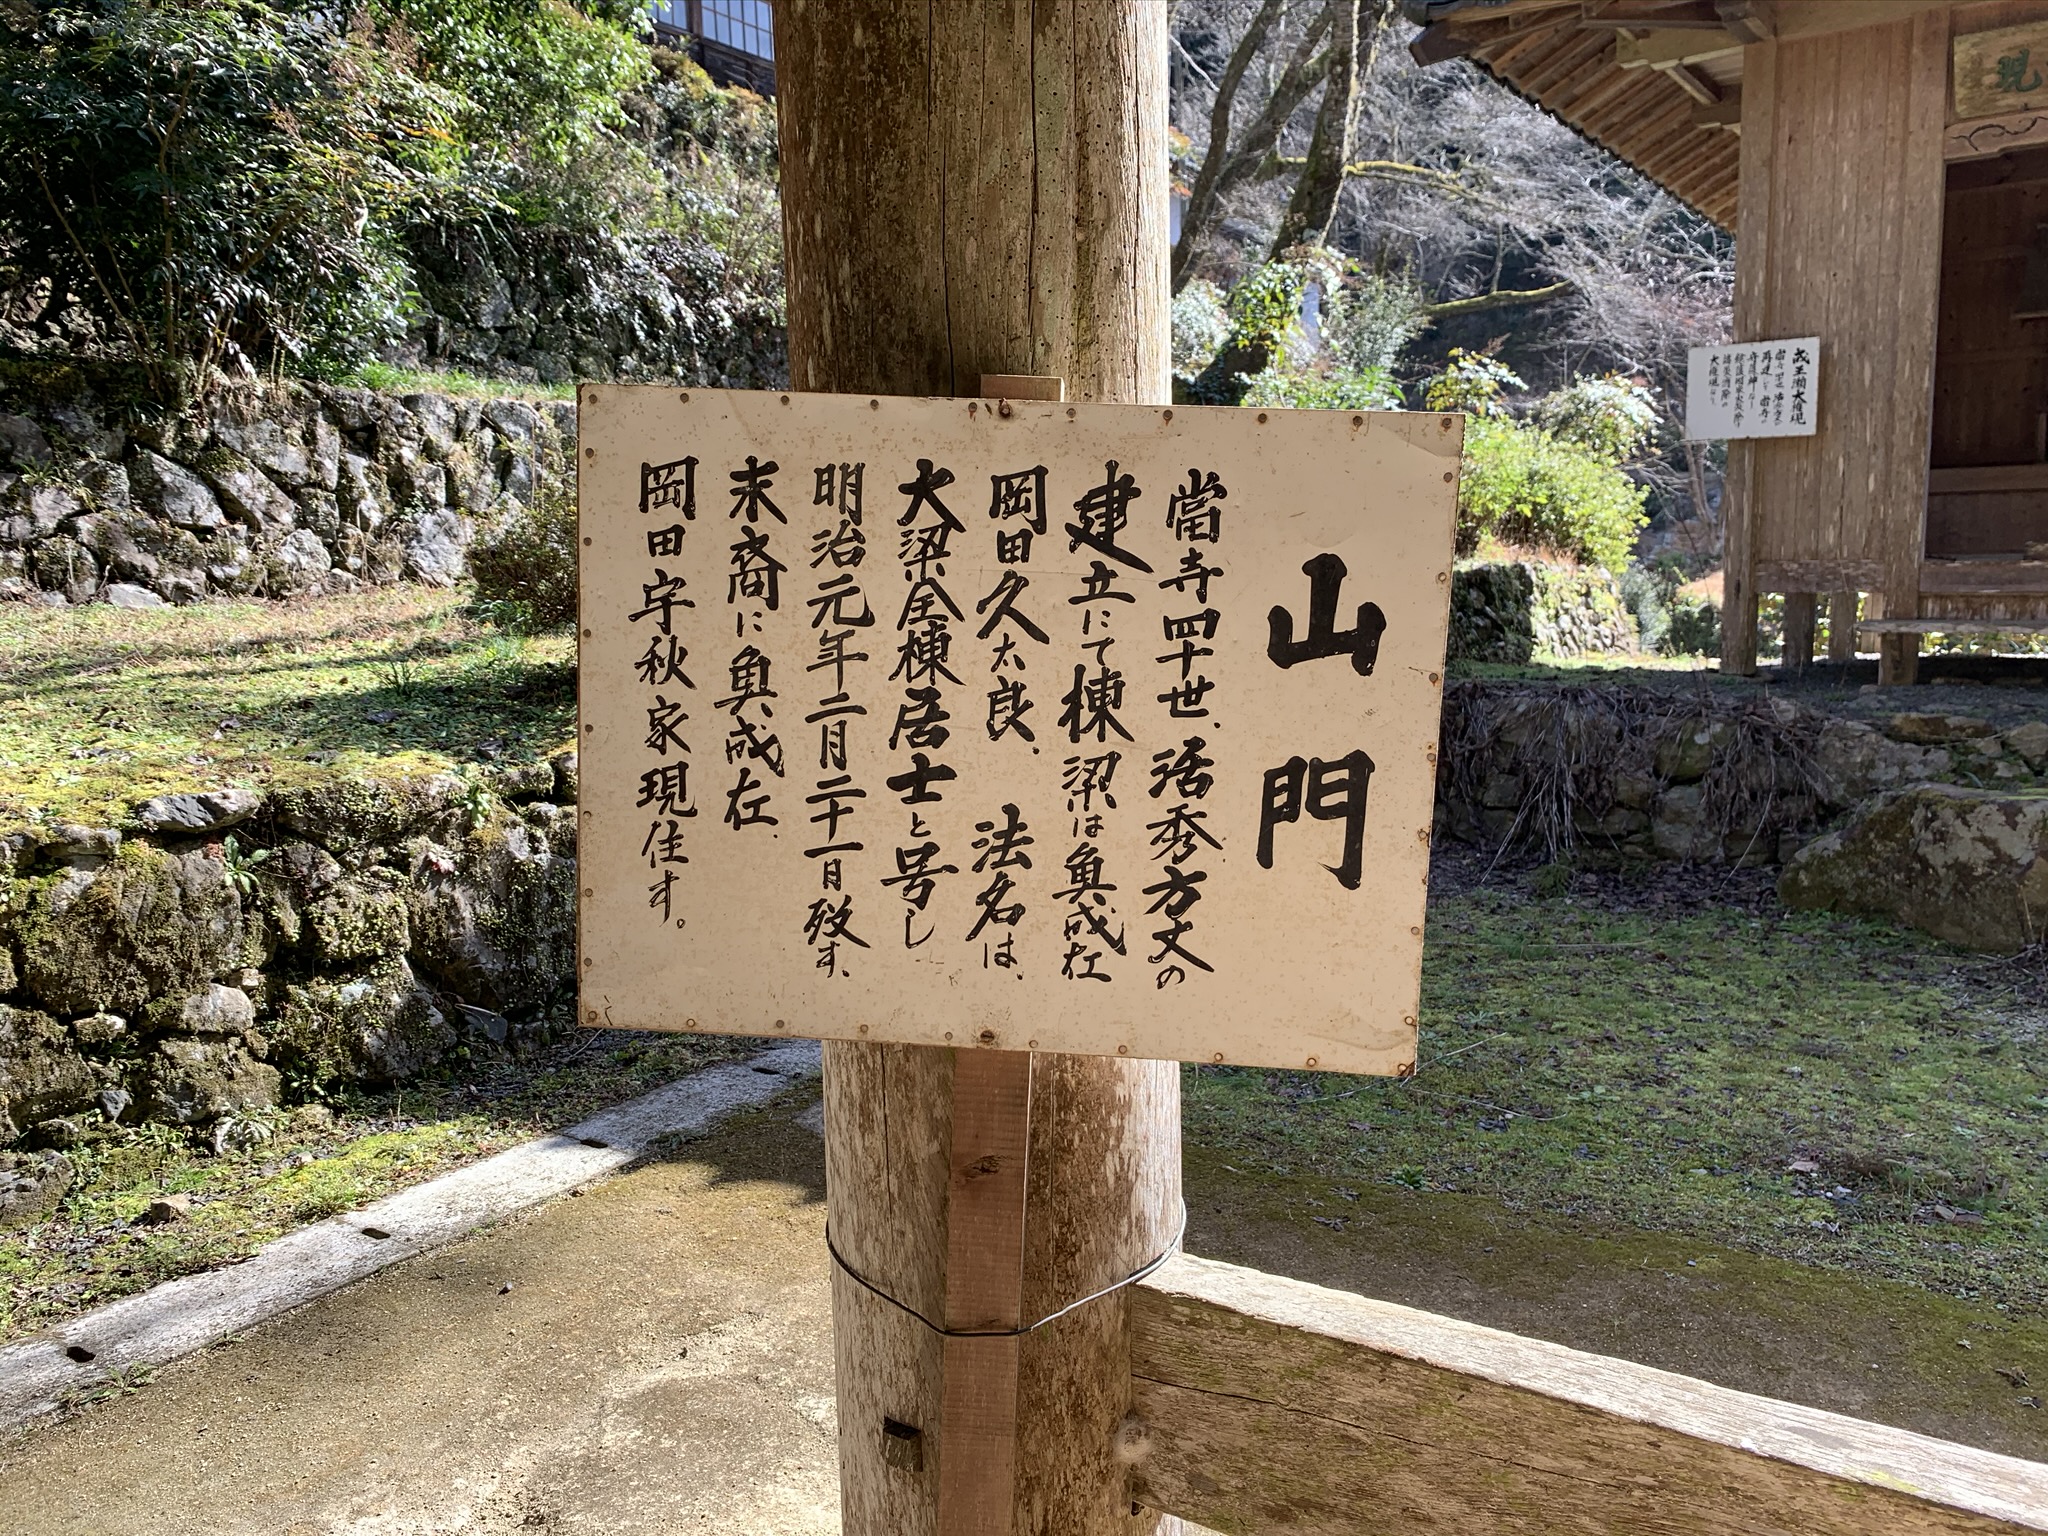 山門
當寺四十世、活秀方丈の
建立にて棟梁は奥成在
岡田久太良、法名は、
大梁全棟居士と号し
明治元年二月二十一日歿す、
末裔に奥成在、
岡田宇秋家現住す。
蔵王閣大権現
大権現なり
現